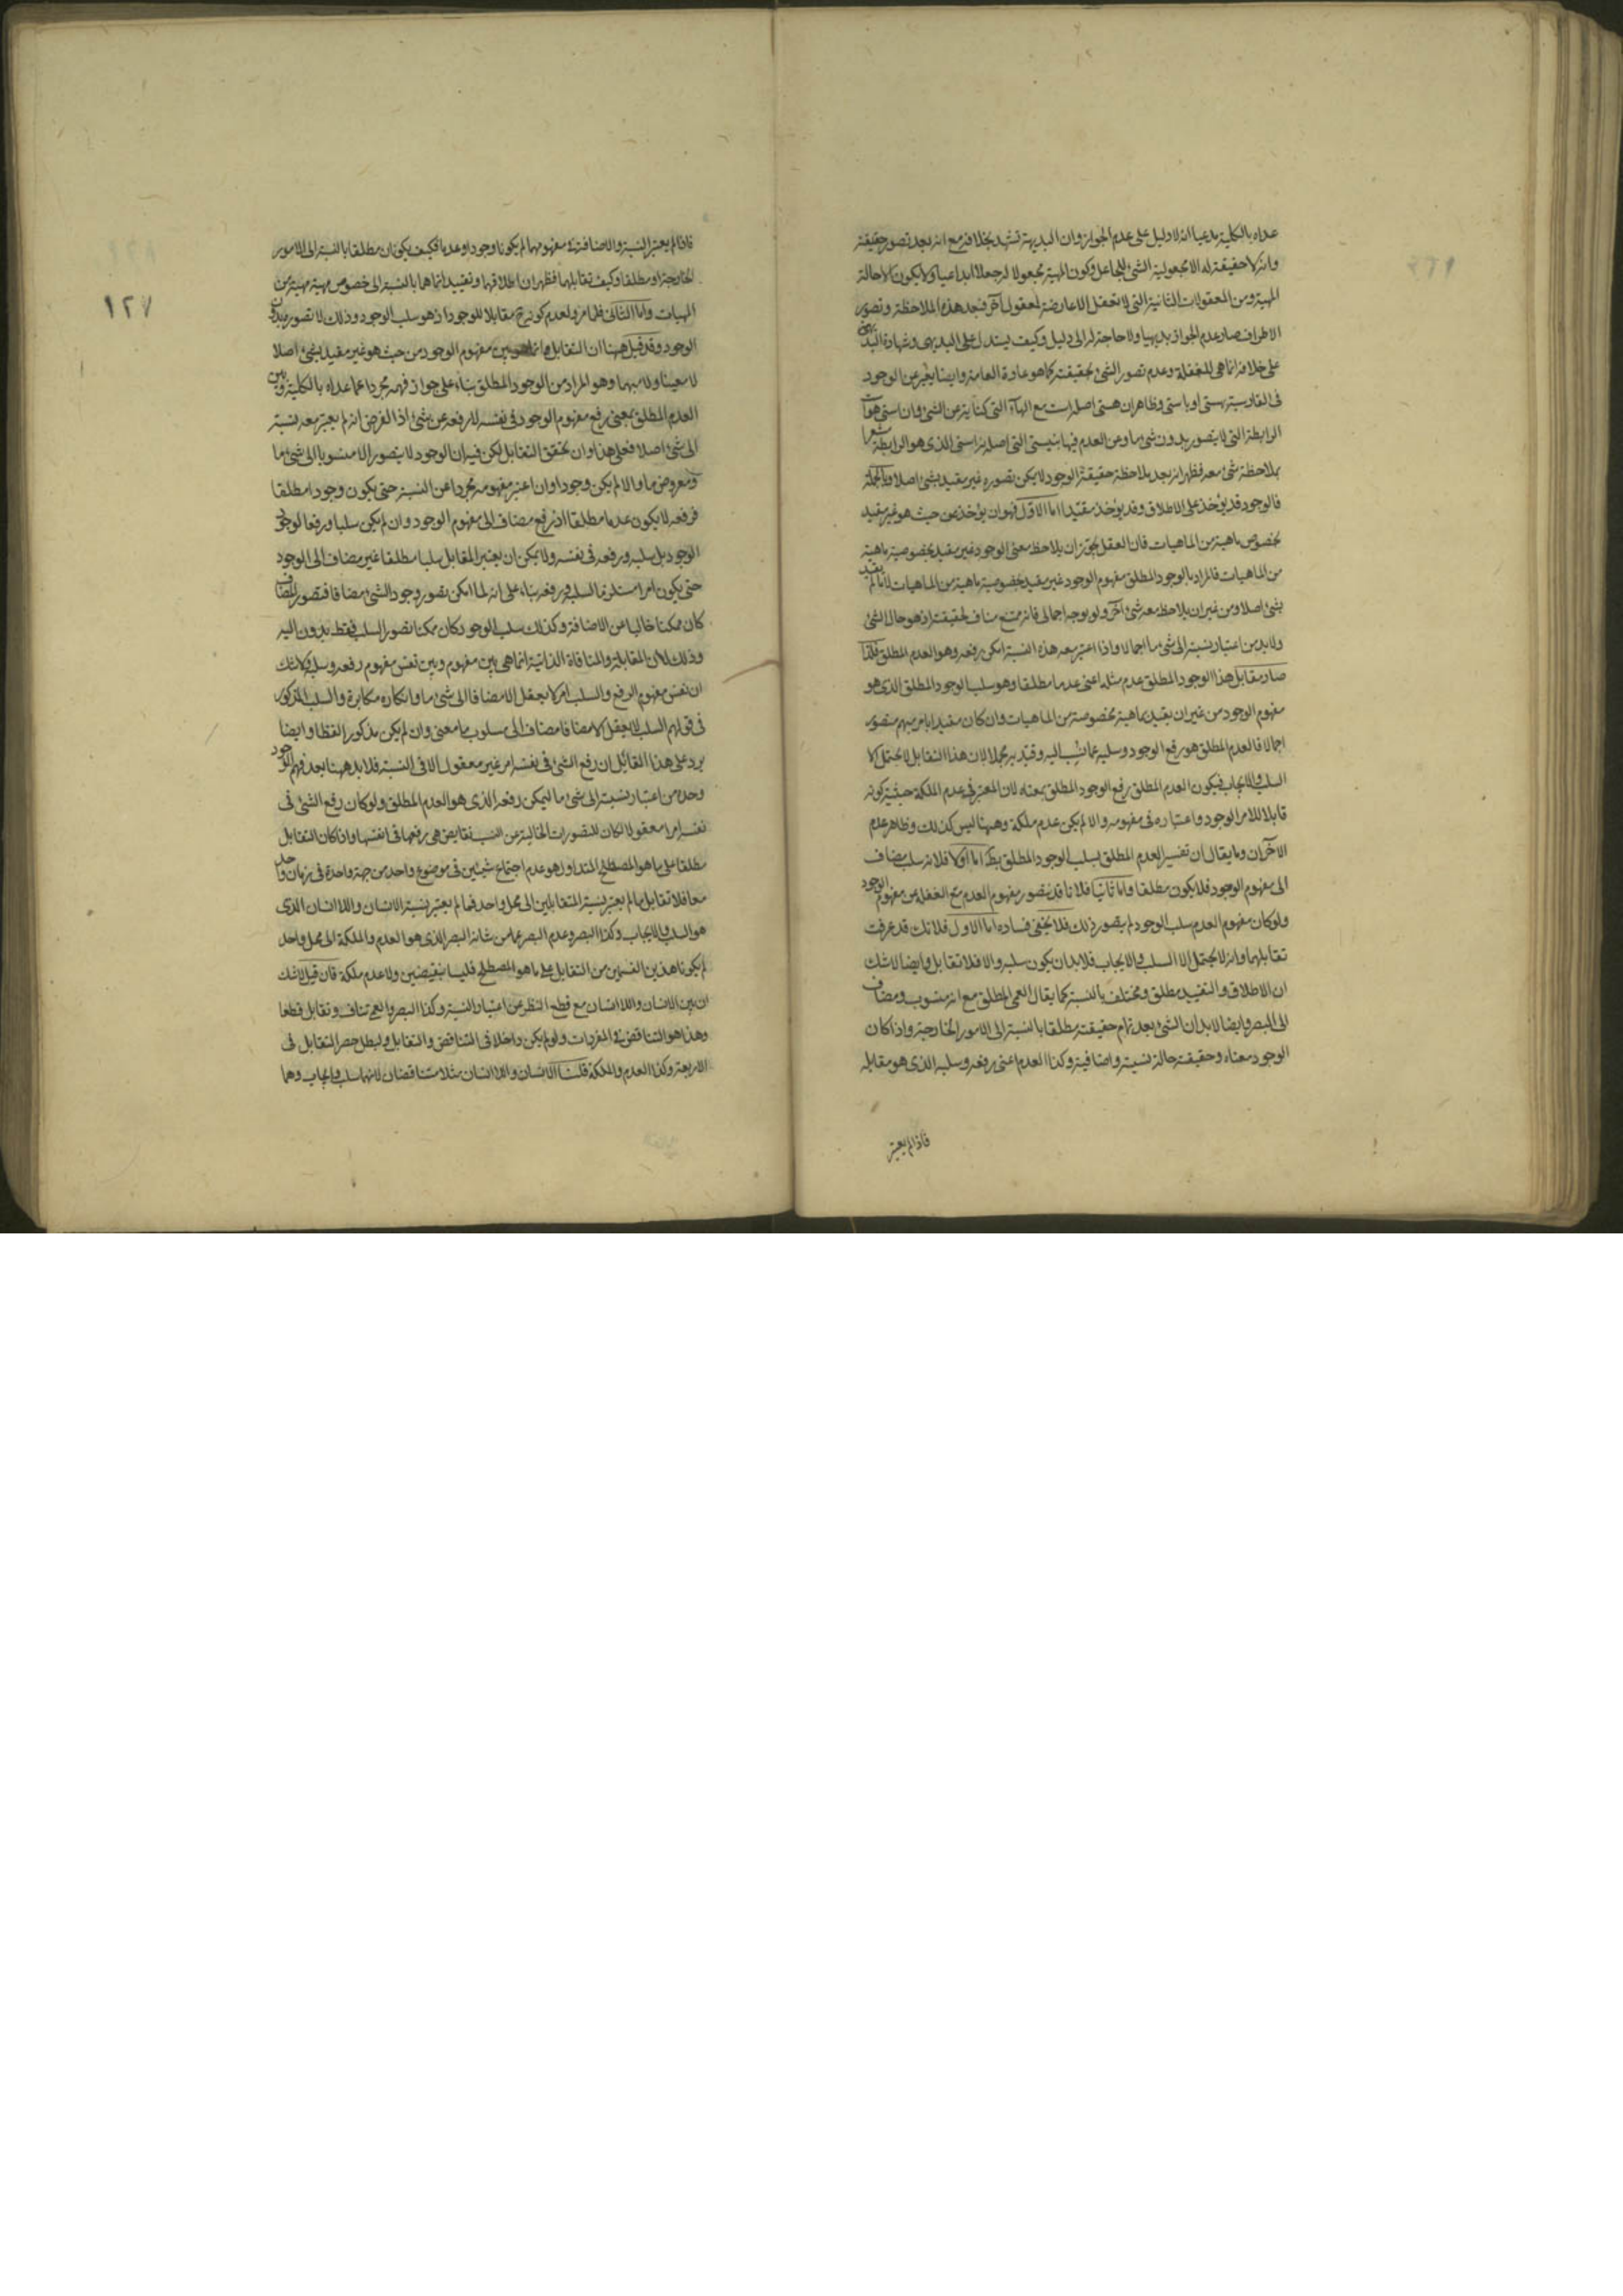 عداه بالكلية مدعيا انه لا دليل على عدم الجواز وان البديهة تشهد بخلافه مع انه بعد تصور حقيقته
وانه لا حقيقة له الا مجعولية الشئ للجاعل وكون المهية مجعولا له جعلا ابداعيا ولا يكون الا حالة
المهية ومن المعقولات الثانية التى لا تعقل الا عارضة لمعقول آخر فبعد هذه الملاحظة وتصور
الاطراف صار عدم الجواز بديهيا ولا حاجة له الى دليل وكيف يستدل على البديهى وشهادة
على خلافه انما هى للغفلة وعدم تصور الشئ بحقيقته كما هو عادة العامة وايضا يعبر عن الوجود
فى الفارسية بهستى او باستى وظاهر ان هستى اصله است مع الهاء التى كناية عن الشئ وان استى هو
الرابطة التى لا يتصور بدون شئ ما وعن العدم فيها بنيستى التى اصله نه استى الذى هو الرابطة
بملاحظة شئ معه فظهر انه بعد ملاحظة حقيقة الوجود لا يمكن تصوره غير مقيد بشئ اصلا وبالجملة
فالوجود قد يؤخذ على الاطلاق وقد يؤخذ مقيدا اما الاول فهو ان يؤخذ من حيث هو غير مقيد
بخصوص ماهية من الماهيات فان العقل يجوز ان يلاحظ معنى الوجود غير مقيد بخصوصية ماهية
من الماهيات فالمراد بالوجود المطلق مفهوم الوجود غير مقيد بخصوصية ماهية من الماهيات لا ما لم يقيد
بشئ اصلا ومن غير ان يلاحظ معه شئ آخر ولو بوجه اجمالى فانه ممتنع مناف لحقيقته اذ هو حال الشئ
ولا بد من اعتبار نسبته الى شئ ما اجمالا واذا اعتبر معه هذه النسبة امكن رفعه وهو العدم المطلق فلذا
صار مقابل هذا الوجود المطلق عدم مثله اعنى عدما مطلقا وهو سلب الوجود المطلق الذى هو
مفهوم الوجود من غير ان يقيد بماهية مخصوصة من الماهيات وان كان مقيدا بامر مبهم متصور
اجمالا فالعدم المطلق هو رفع الوجود وسلبه عما نسب اليه وقيد به مجملا لان هذا التقابل لا يحتمل الا
السلب والايجاب فيكون العدم المطلق رفع الوجود المطلق بمعناه لان المعتبر فى عدم الملكة حيثية كونه
قابلا للامر الوجود واعتباره فى مفهومه والا لم يكن عدم ملكة وههنا ليس كذلك وظاهر عدم
الآخران وما يقال ان تفسير العدم المطلق بسلب الوجود المطلق بط اما اولا فلانه سلب مضاف
الى مفهوم الوجود فلا يكون مطلقا واما ثانيا فلانا قد نتصور مفهوم العدم مع الغفلة من مفهوم الوجود
ولو كان مفهوم العدم سلب الوجود لم يتصور ذلك فلا يخفى فساده اما الاول فلانك قد عرفت
تقابلهما وانه لا يحتمل الا السلب والايجاب فلا بد ان يكون سلبه والا فلا تقابل وايضا لا شك
ان الاطلاق والتقييد مطلق ومختلف بالنسبة كما يقال العمى المطلق مع انه منسوب ومضاف
الى البصر وايضا لا بد ان الشئ بعد تمام حقيقته مطلقا بالنسبة الى الامور الخارجية واذا كان
الوجود معناه وحقيقته حالة نسبية واضافية وكذا العدم اعنى رفعه وسلبه الذى هو مقابله
فاذا لم يعتبر
١٢٧
فاذا لم يعتبر النسبة والاضافة فى مفهومهما لم يكونا وجودا وعدما فكيف يكونان مطلقا بالنسبة الى الامور
الخارجة او مطلقا وكيف تقابلهما فظهر ان اطلاقهما وتقييدهما انما هما بالنسبة الى خصوص مهية مهية من
المهيات واما الثانى فلما مر ولعدم كونه مقابلا للوجود اذ هو سلب الوجود وذلك لا يتصور بدون
الوجود وقد قيل ههنا ان التقابل انما هو بين مفهوم الوجود من حيث هو غير مقيد بشئ اصلا
لا معينا ولا مبهما وهو المراد من الوجود المطلق بناء على جواز فهمه مجردا عما عداه بالكلية وبين
العدم المطلق بمعنى رفع مفهوم الوجود فى نفسه لا رفعه عن شئ اذ الفرض انه لم يعتبر معه نسبة
الى شئ اصلا فعلى هذا وان تحقق التقابل لكن فيه ان الوجود لا يتصور الا منسوبا الى شئ ما
ومعروض ما والا لم يكن وجودا وان اعتبر مفهومه مجردا عن النسبة حتى يكون وجودا مطلقا
فرفعه لا يكون عدما مطلقا اذ رفع مضاف الى مفهوم الوجود وان لم يكن سلبا ورفعا لوجود
الوجود بل سلبه ورفعه فى نفسه ولا يمكن ان يعتبر المقابل سلبا مطلقا غير مضاف الى الوجود
حتى يكون امرا مستلزما لسلبه ورفعه بناء على انه لما امكن تصور وجود الشئ مضافا فتصور المضاف
كان ممكنا خاليا من الاضافة وكذلك سلب الوجود كان ممكنا تصور السلب فقط بدون اليه
وذلك لان المقابلة والمنافاة الذاتية انما هى بين مفهوم وبين نفس مفهوم رفعه وسلبه ولا شك
ان نفس مفهوم الرفع والسلب امر لا يعقل الا مضافا الى شئ ما وانكاره مكابرة والسلب المذكور
فى قولهم السلب لا يعقل الا مضافا مضاف الى مسلوب ما معنى وان لم يكن مذكورا لفظا وايضا
يرد على هذا القائل ان رفع الشئ فى نفسه امر غير معقول الا فى النسبة فلا بد ههنا بعد فهم الوجود
وحده من اعتبار نسبته الى شئ ما ليمكن رفعه الذى هو العدم المطلق ولو كان رفع الشئ فى
نفسه امرا معقولا لكان للتصورات الخالية عن النسب نقايض هى رفعها فى انفسها واذا كان التقابل
مطلقا على ما هو المصطلح المتداول هو عدم اجتماع شيئين فى موضوع واحد من جهة واحدة فى زمان واحد
معا فلا تقابل ما لم يعتبر نسبة المتقابلين الى محل واحد فما لم يعتبر نسبة الانسان واللاانسان الذى
هو السلب والايجاب وكذا البصر وعدم البصر عما من شانه البصر الذى هو العدم والملكة الى محل واحد
لم يكونا هذين القسمين من التقابل على ما هو المصطلح فليسا بنقيضين ولا عدم ملكة فان قيل لا شك
ان بين الانسان واللاانسان مع قطع النظر عن اعتبار النسبة وكذا البصر والعمى تناف وتقابل قطعا
وهذا هو التناقض فى المفردات ولو لم يكن داخلا فى التناقض والتقابل ولبطل حصر التقابل فى
الاربعة وكذا العدم والملكة قلنا الانسان واللاانسان مثلا متناقضان لانهما سلب وايجاب وهما